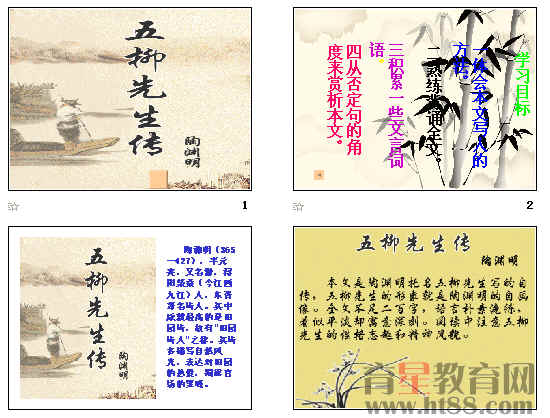 五柳先生传
陶渊明
1
学习目标
一体会本文写人的
方法。
二熟练背诵全文。
三积累一些文言词
语。
四从否定句的角
度来赏析本文。
2
五柳先生传
陶渊明
陶渊明（365
—427），字元
亮，又名潜，浔
阳柴桑（今江西
九江）人，东晋
著名诗人。其中
成就最高的是田
园诗，故有“田园
诗人”之称。其诗
多描写自然风
光，表达对田园
的热爱，揭露官
场的黑暗。
五柳先生传
陶渊明
本文是陶渊明托名五柳先生写的自
传，五柳先生的形象就是陶渊明的自画
像。全文不足二百字，语言朴素洗练，
看似平淡却寓意深刻。阅读中注意五柳
先生的性格志趣和精神风貌。
育星教育网
www.ht88.com